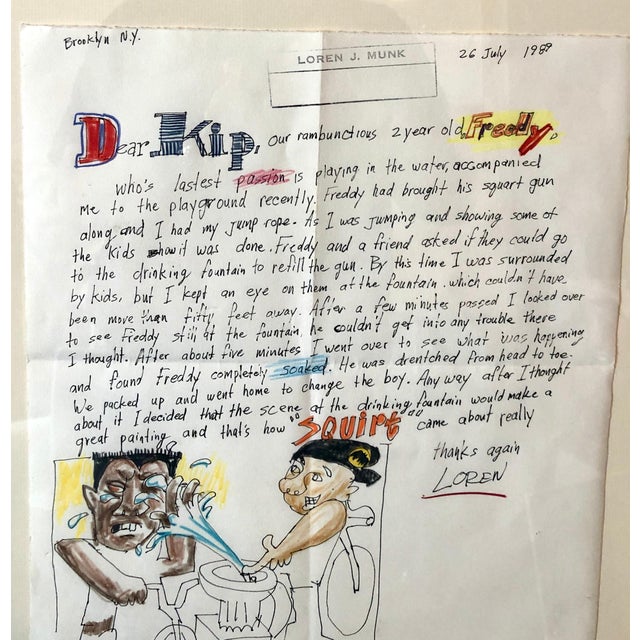 Brooklyn N.Y.
LOREN J. MUNK
26 July 1989
Dear Kip, our rambunctious 2 year old, Freddy,
who's lastest passion is playing in the water, accompanied
me to the playground recently. Freddy had brought his squart gun
along and I had my jump rope. As I was jumping and showing some of
the kids how it was done. Freddy and a friend asked if they could go
to the drinking fountain to refill the gun. By this time I was surrounded
by kids, but I kept an eye on them at the fountain. which couldn't have
been more than fifty feet away. After a few minutes passed I looked over
to see Freddy still at the fountain, he couldn't get into any trouble there
I thought. After about five minutes I went over to see what was happening
and found Freddy completely soaked. He was drentched from head to toe.
We packed up and went home to change the boy. Any way after I thought
about it I decided that the scene at the drinking fountain would make a
great painting and that's how "SQUIRT" came about really
thanks again
LOREN